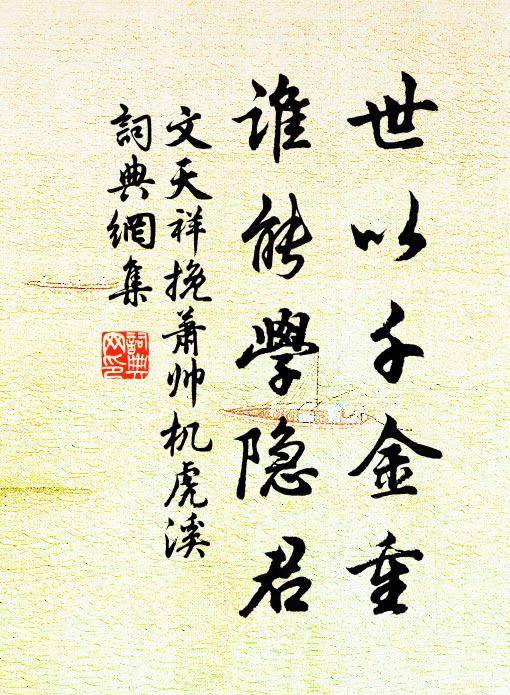 世以千金重
谁能學隐君
文天祥挽萧帅机虎溪
詞典網集
詞典网印